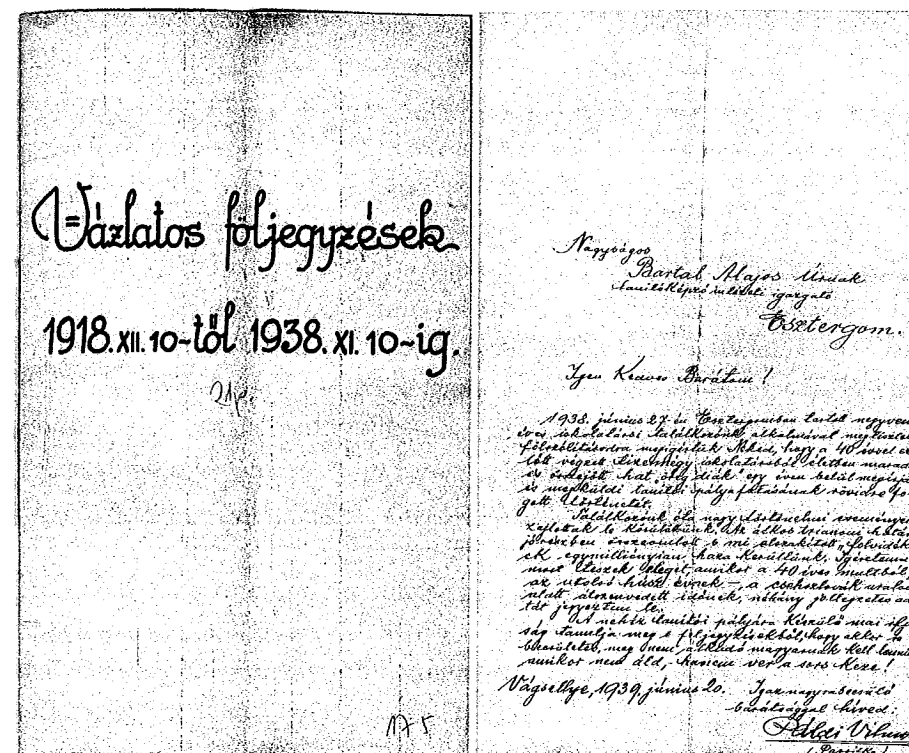 Vázlatos följegyzések
1918. XII. 10-től 1938. XI. 10-ig.
21p.
175
Nagyságos
Bartal Alajos Úrnak
tanítóképző intézeti igazgató
Esztergom.
Igen Kedves Barátom!
1938. június 27-én Esztergomban tartott negyven
éves iskolatársi találkozónk alkalmával megtisztel
fölszólításodra megigértük Neked, hogy a 40 évvel
végzett tizennégy iskolatársból életben marad
és hat öreg diák egy éven belül megírja
és megküldi tanítói pályafutásának rövidre fo-
gott történetét.
Találkozónk óta nagy történelmi események
zajlottak le körülöttünk. Az átkos trianoni határ
jórészben összeomlott s mi elszakított „felvidék
ek egymilliónyian haza kerültünk. Igéretemn
most teszek eleget, amikor a 40 éves multból
az utolsó húsz évnek – a csehszlovák uralom
alatt átszenvedett időnek, néhány jellegzetes ad
tát jegyeztem le.
A nehéz tanítói pályára készülő mai ifj
ság tanulja meg e följegyzésekből, hogy akkor is
becsületes, meg nem alkuvó magyarnak kell lenni
amikor nem áld, hanem ver a sors keze!
Vágsellye, 1939. június 20. Igaz nagyrabecsülő
barátsággal híved:
Páldi Vilmos